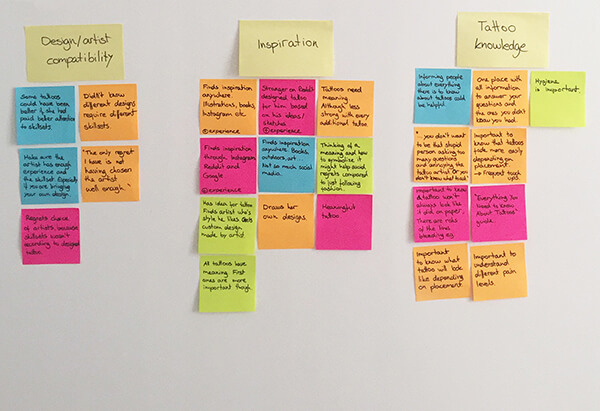 Design/artist
compatibility
Some tattoos
could have been
better if she had
paid better attention
to skillsets
Didn't know
different designs
require different
skillsets.
Make sure the
artist has enough
experience and
the skillset. Especially
if you are bringing
your own design.
"The only regret
I have is not
having chosen
the artist
well enough."
Regrets choice
of artists, because
skillsets wasn't
according to designed
tattoo.
Inspiration
Finds inspiration
anywhere.
Illustrations, books,
Instagram etc.
experience
Stranger on Reddit
designed tattoo
for him based
on his ideas/
sketches
experience
Tattoos need
meaning.
Although less
strong with every
additional tattoo.
Finds inspiration
through Instagram,
Reddit and
Google
experience
Finds inspiration
anywhere. Books,
outdoors, art...
Not so much social
media.
Thinking of a
meaning and how
to symbolize it
might help avoid
regrets compared to
just following
fashion.
Has idea for tattoo
Finds artist who's
style he likes. Gets
custom design
made by artist.
Draws her
own designs.
Meaningful
tattoo
All tattoos have
meaning. First
ones are more
important though.
Tattoo
knowledge
Informing people
about everything
there is to know
about tattoos could
be helpful.
One place with
all information
to answer your
questions and
the ones you didn't
know you had.
Hygiene
is important.
"..you don't want
to be that stupid
person asking too
many questions
and annoying the
tattoo artist. Or you
don't know what to ask"
Important to
know that tattoos
fade more easily
depending on
placement.
→ Frequent touch
ups.
Important to know
a tattoo won't
always look like
it did on paper.
There are risks
of the lines
bleeding eg.
"Everything You
Need to Know
About Tattoos"
guide.
Important
to know what
tattoo will look
like depending
on placement
Important to
understand
different pain
levels.